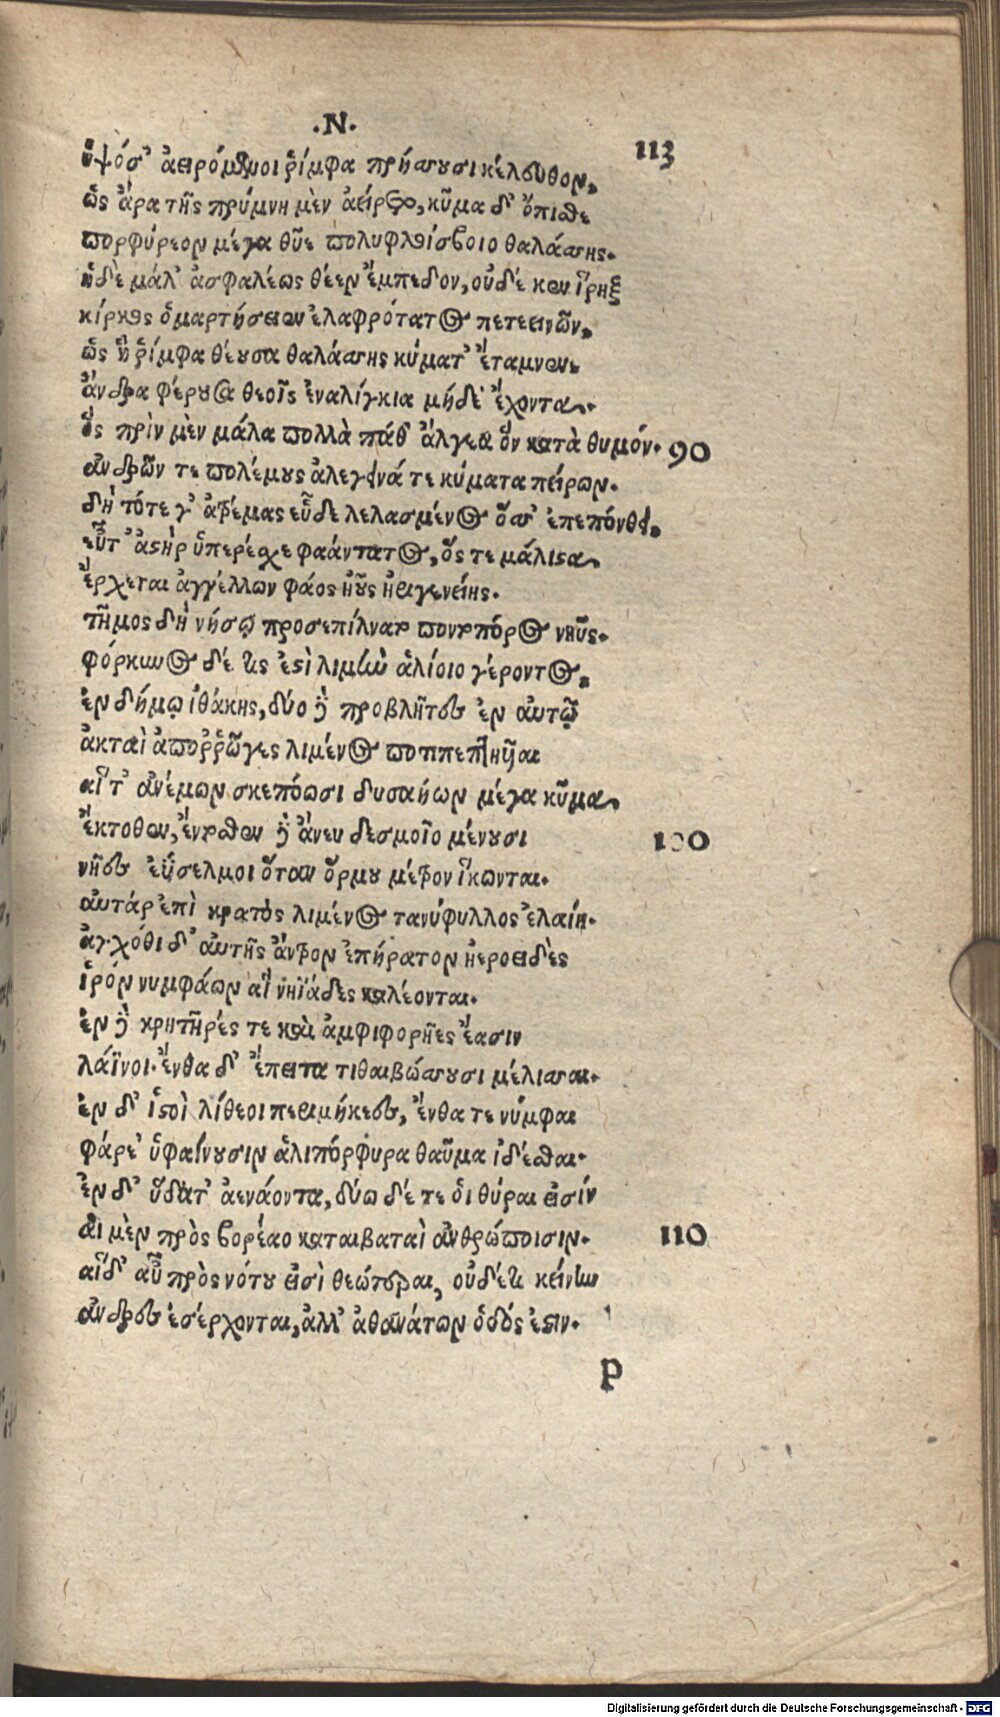 .N.
113
ὑψόσ' ἀειρόμενοι ῥίμφα πρήσσουσι κέλευθον,
ὣς ἄρα τῆς πρύμνη μὲν ἀείρετο, κῦμα δ' ὄπισθε
πορφύρεον μέγα θῦε πολυφλοίσβοιο θαλάσσης.
ἡ δὲ μάλ' ἀσφαλέως θέεν ἔμπεδον, οὐδέ κεν ἴρηξ
κίρκος ὁμαρτήσειεν ἐλαφρότατος πετεεινῶν,
ὣς ἡ ῥίμφα θέουσα θαλάσσης κύματ' ἔταμνεν,
ἄνδρα φέρουσα θεοῖς ἐναλίγκια μήδε' ἔχοντα.
ὃς πρὶν μὲν μάλα πολλὰ πάθ' ἄλγεα ὃν κατὰ θυμόν. 90
ἀνδρῶν τε πολέμους ἀλεγεινά τε κύματα πείρων.
δὴ τότε γ' ἀτρέμας εὗδε λελασμένος ὅσσ' ἐπεπόνθει,
εὖτ' ἀστὴρ ὑπερέσχε φαάντατος, ὅς τε μάλιστα
ἔρχεται ἀγγέλλων φάος ἠοῦς ἠριγενείης.
τῆμος δὴ νήσῳ προσεπίλνατο ποντοπόρος νηῦς.
φόρκυνος δέ τις ἐστὶ λιμὴν ἁλίοιο γέροντος,
ἐν δήμῳ ἰθάκης, δύο δὲ προβλῆτες ἐν αὐτῷ
ἀκταὶ ἀποῤῥῶγες λιμένος ποτιπεπτηυῖαι
αἵτ' ἀνέμων σκεπόωσι δυσαήων μέγα κῦμα,
ἔκτοθεν, ἔντοσθεν δὲ ἄνευ δεσμοῖο μένουσι 100
νῆες ἐΰσελμοι ὅταν ὅρμου μέτρον ἵκωνται.
αὐτὰρ ἐπὶ κρατὸς λιμένος τανύφυλλος ἐλαίη.
ἀγχόθι δ' αὐτῆς ἄντρον ἐπήρατον ἠεροειδὲς
ἱρόν νυμφάων αἳ νηϊάδες καλέονται.
ἐν δὲ κρητῆρές τε καὶ ἀμφιφορῆες ἔασιν
λάϊνοι. ἔνθα δ' ἔπειτα τιθαιβώσσουσι μέλισσαι.
ἐν δ' ἱστοὶ λίθεοι περιμήκεες, ἔνθα τε νύμφαι
φάρε' ὑφαίνουσιν ἁλιπόρφυρα θαῦμα ἰδέσθαι.
ἐν δ' ὕδατ' ἀενάοντα, δύω δέ τε οἱ θύραι εἰσίν
αἱ μὲν πρὸς βορέαο καταιβαταὶ ἀνθρώποισιν. 110
αἱ δ' αὖ πρὸς νότου εἰσὶ θεώτεραι, οὐδέ τι κείνῃ
ἄνδρες ἐσέρχονται, ἀλλ' ἀθανάτων ὁδός ἐστιν.
P
Digitalisierung gefördert durch die Deutsche Forschungsgemeinschaft - DFG